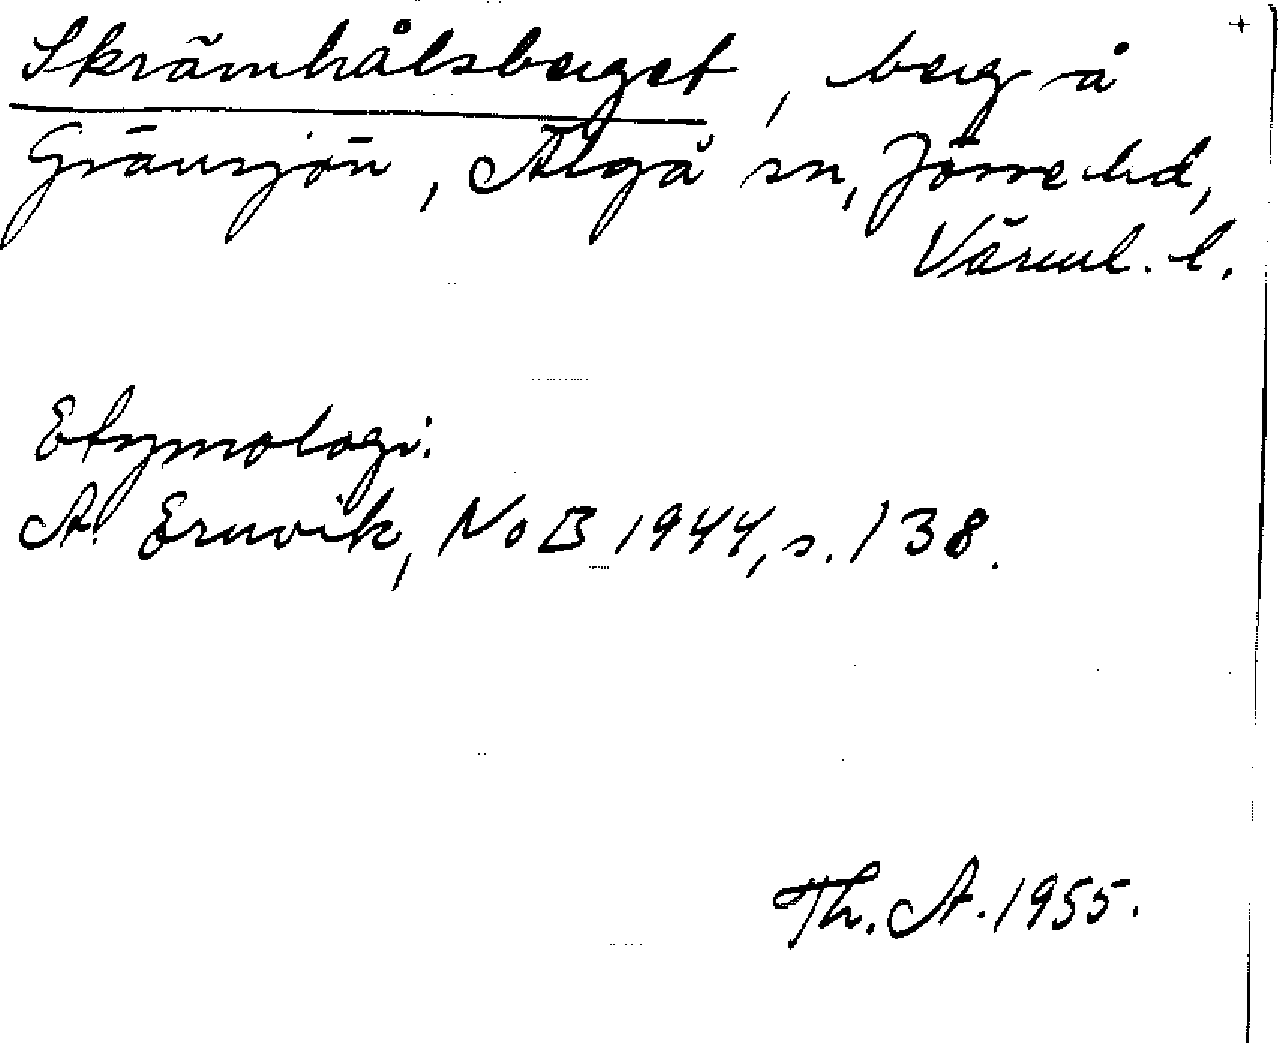 Skrämhålsberget, berg å
Gränsjön, Älgå sn, Jösse hd,
Värml. l.
Etymologi:
A. Ernvik, NoB 1944, s. 138.
Th. A. 1955.